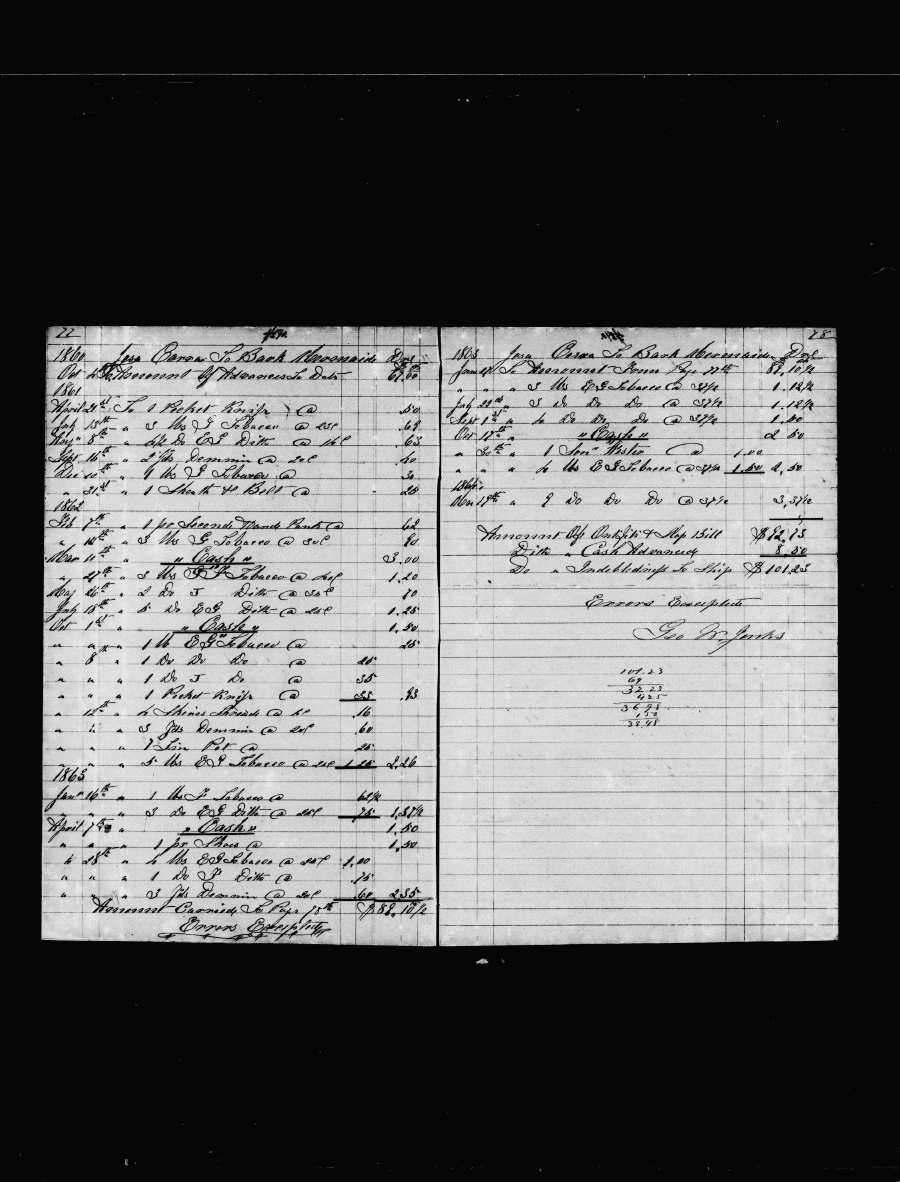 77
1860 Jose To Bark Mermaid Drs
Oct To Amount Of Advances To Date 69.00
1861
April 21st To 1 Pocket Knife @ .50
July 13th " 3 lbs Tobacco @
" 8th " Do E G Ditto @ 63
Sept 2 Yds Demmin @ 20c 40
Dec 10th " 1 lb Tobacco @ 30
" 31st " 1 Sheath & Belt @ 25
1862
Feb 7th " 1 pr Second Hand Pants @ 62
" " 3 lbs G Tobacco @ 30c 90
Mar 11th " " Cash " 3.00
" 21st " 3 lbs Tobacco @ 40c 1.20
May 26th " 2 Do J Ditto @ 35c 70
July 15th " 5 Do E G Ditto @ 25c 1.25
Oct 1st " " Cash " 1.50
" " " 1 lb E G Tobacco @ 25
" 8 " 1 Do Do Do @ 25
" " " 1 Do J Do @ 35
" " " 1 Pocket Knife @ 33 .93
" 12th " 4 Skeins Threads @ 4c .16
" " " 3 Yds Demmin @ 20c .60
" " " 1 Tin Pot @ 25
" " " 5 lbs E G Tobacco @ 25c 1.25 2.26
1863
Jany 16th " 1 lb Tobacco @ 62½
" " " 3 Do E G Ditto @ 25c 75 1.37½
April 7th " " Cash " 1.50
" " " 1 pr Shoes @ 1.50
" 28th " 4 lbs E G Tobacco @ 25c 1.00
" " " 1 Do Ditto @ .75
" " " 3 Yds Demmin @ 20c .60 2.35
Amount Carried To Page 78th $88.10½
Errors Excepted
78
1863 Jose To Bark Mermaid Drs
June To Amount From Page 77th 88.10½
" " " 3 lbs E G Tobacco @ 37½ 1.12½
July 22nd " 3 Do Do Do @ 37½ 1.12½
Sept 1st " Do Do Do @ 37½
Oct 17th " " Cash " 2.50
" 30th " 1 @ 1.00
" " " 4 lbs E G Tobacco @ 37½ 1.50 2.50
1864
Mar 19th " 9 Do Do Do @ 37½ 3.37½
Amount Of Outfits & Slop Bill $92.73
Ditto " Cash Advanced 8.50
Do " Indebtedness To Ship $101.23
Errors Excepted
Geo W. Jenks
101.23
69
32 23
4 25
36 48